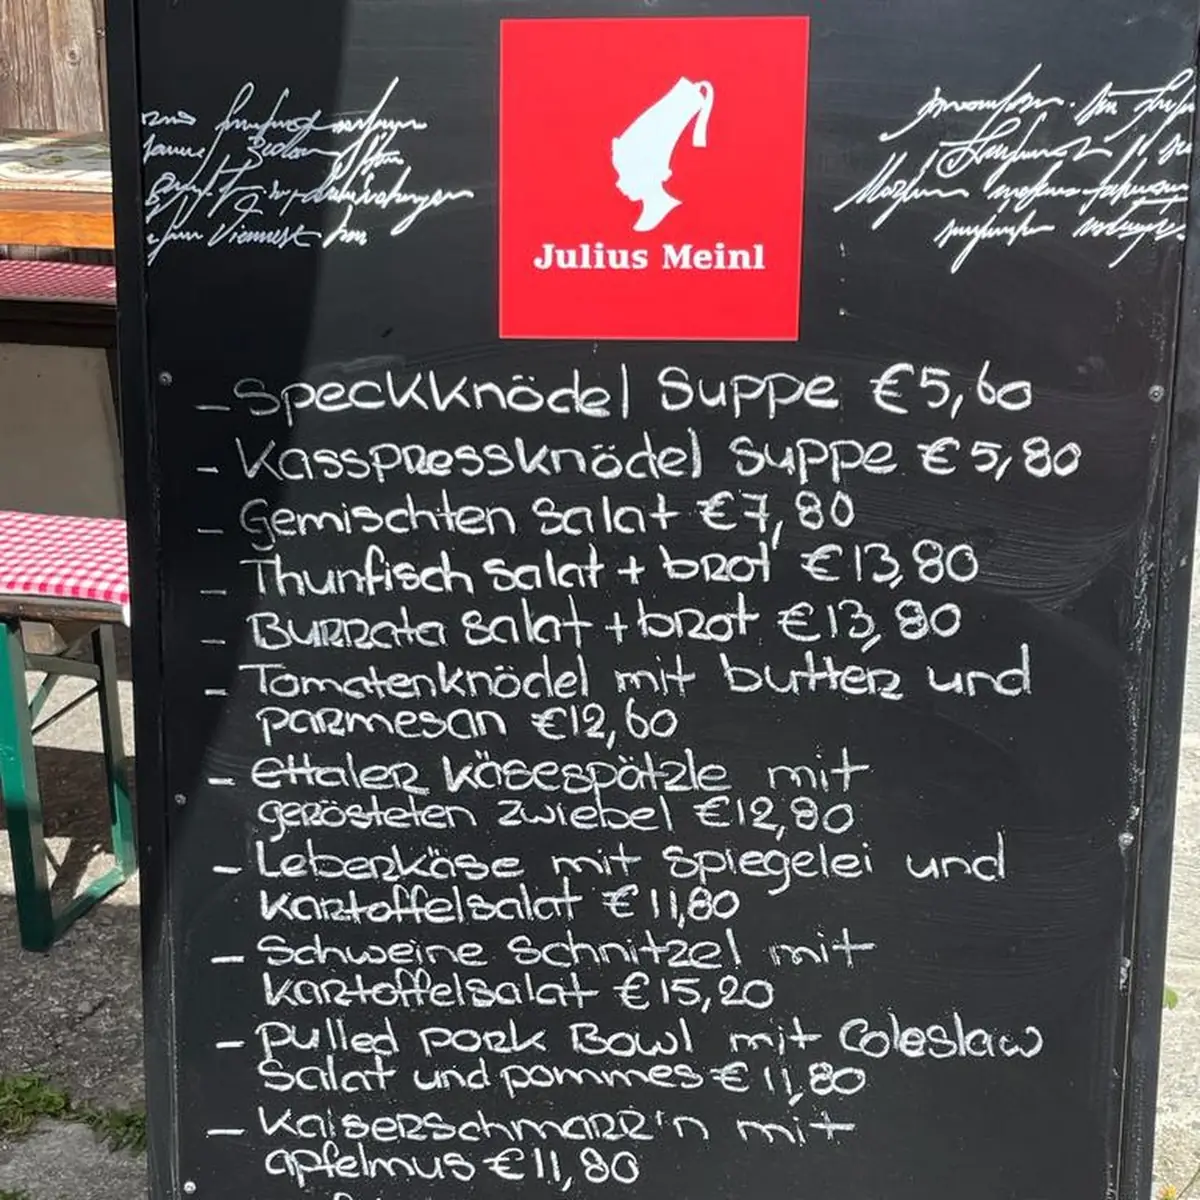 Julius Meinl
- Speckknödel Suppe €5,60
- Kasspressknödel Suppe €5,80
- Gemischten Salat €7,80
- Thunfisch Salat + brot €13,80
- Burrata Salat + brot €13,80
- Tomatenknödel mit butter und
parmesan €12,60
- Ettaler Käsespätzle mit
gerösteten zwiebel €12,80
- Leberkäse mit Spiegelei und
Kartoffelsalat €11,80
- Schweine Schnitzel mit
Kartoffelsalat €15,20
- Pulled Pork Bowl mit Coleslaw
Salat und pommes €11,80
- Kaiserschmarr'n mit
apfelmus €11,80